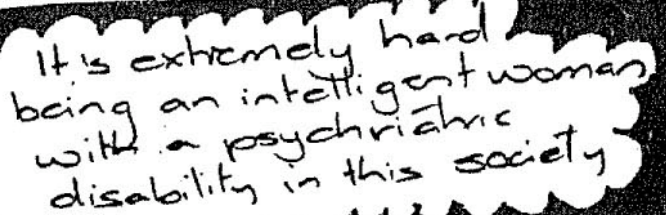 It's extremely hard
being an intelligent woman
with a psychriatric
disability in this society